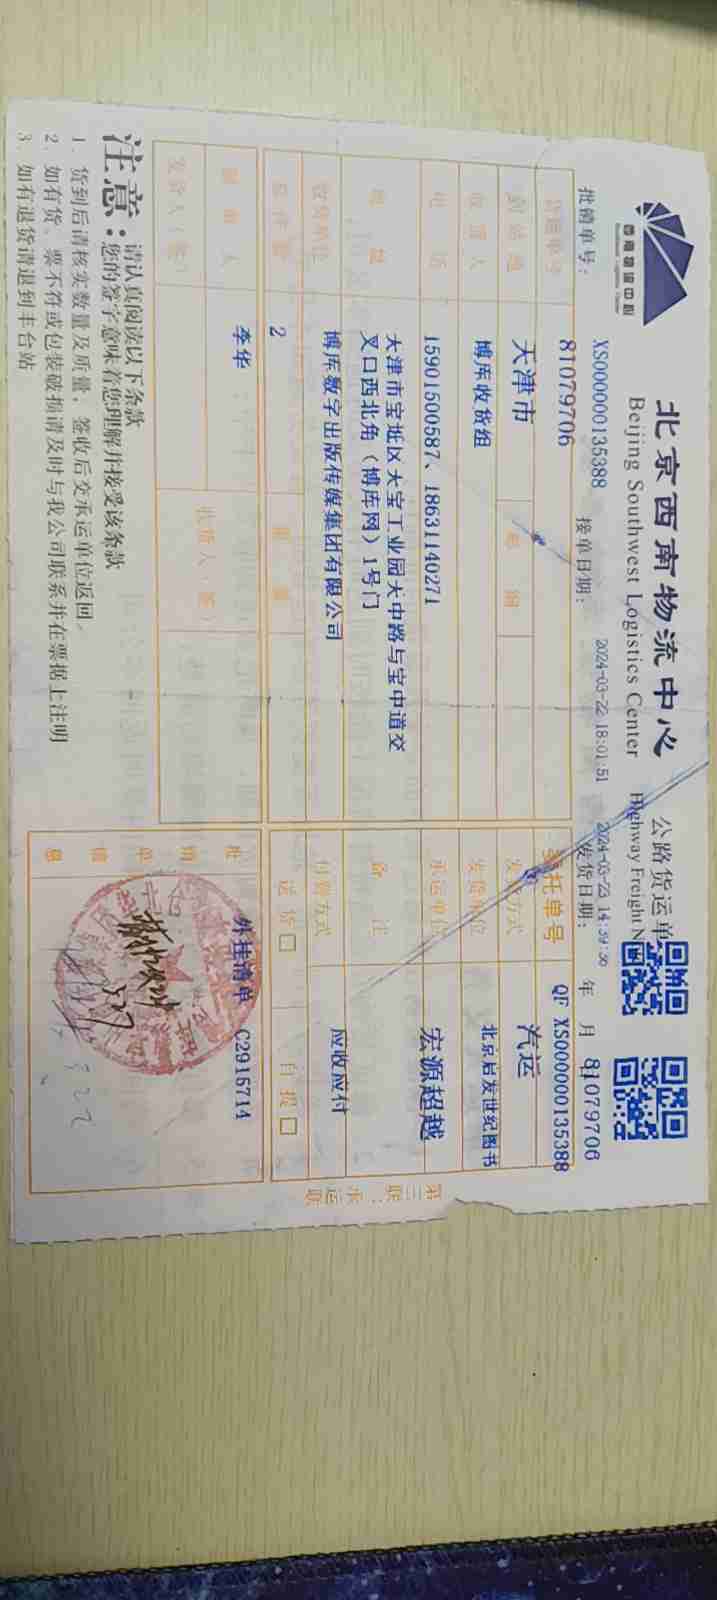 西南物流中心
Southwest Logistics Center
北京西南物流中心
Beijing Southwest Logistics Center
公路货运单
Highway Freight N
81079706
批销单号: XS0000000135388 接单日期: 2024-03-22 18:01:51 发货日期: 2024-03-23 14:39:30 年 月
货运单号 81079706 委托单号 QF XS0000000135388
到站地 天津市 发货方式 汽运
收货人 博库收货组 发货单位 北京启发世纪图书
电话 15901500587、18631140271 承运单位 宏源超越
地址 天津市宝坻区大宝工业园大中路与宝中道交
叉口西北角（博库网）1号门
备注
收货单位 博库数字出版传媒集团有限公司 付款方式 应收应付
总件数 2 重量 送货□ 自提□
李华
发货人（签） 收货人（签）
批销单信息 外挂清单 C2915714
第三联：承运联
注意:
请认真阅读以下条款
您的签字意味着您理解并接受该条款
1. 货到后请核实数量及质量，签收后交承运单位返回。
2. 如有货、票不符或包装破损请及时与我公司联系并在票据上注明
3. 如有退货请退到丰台站